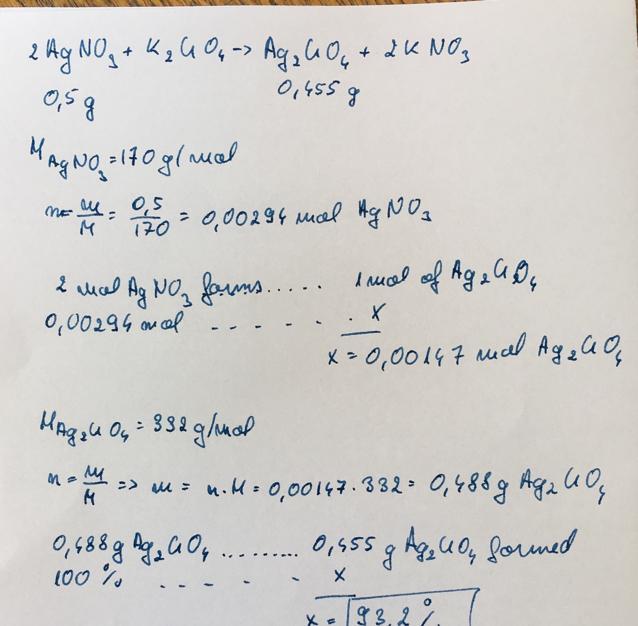 2 AgNO₃ + K₂CrO₄ → Ag₂CrO₄ + 2KNO₃
0,5 g 0,455 g
M AgNO₃ = 170 g/mol
n = m/M = 0,5/170 = 0,00294 mol AgNO₃
2 mol AgNO₃ forms ..... 1 mol of Ag₂CrO₄
0,00294 mol - - - - - . . x
x = 0,00147 mol Ag₂CrO₄
M Ag₂CrO₄ = 332 g/mol
n = m/M => m = n.M = 0,00147 . 332 = 0,488 g Ag₂CrO₄
0,488 g Ag₂CrO₄ ......... 0,455 g Ag₂CrO₄ formed
100 % . - - - - x
x = 93,2 %